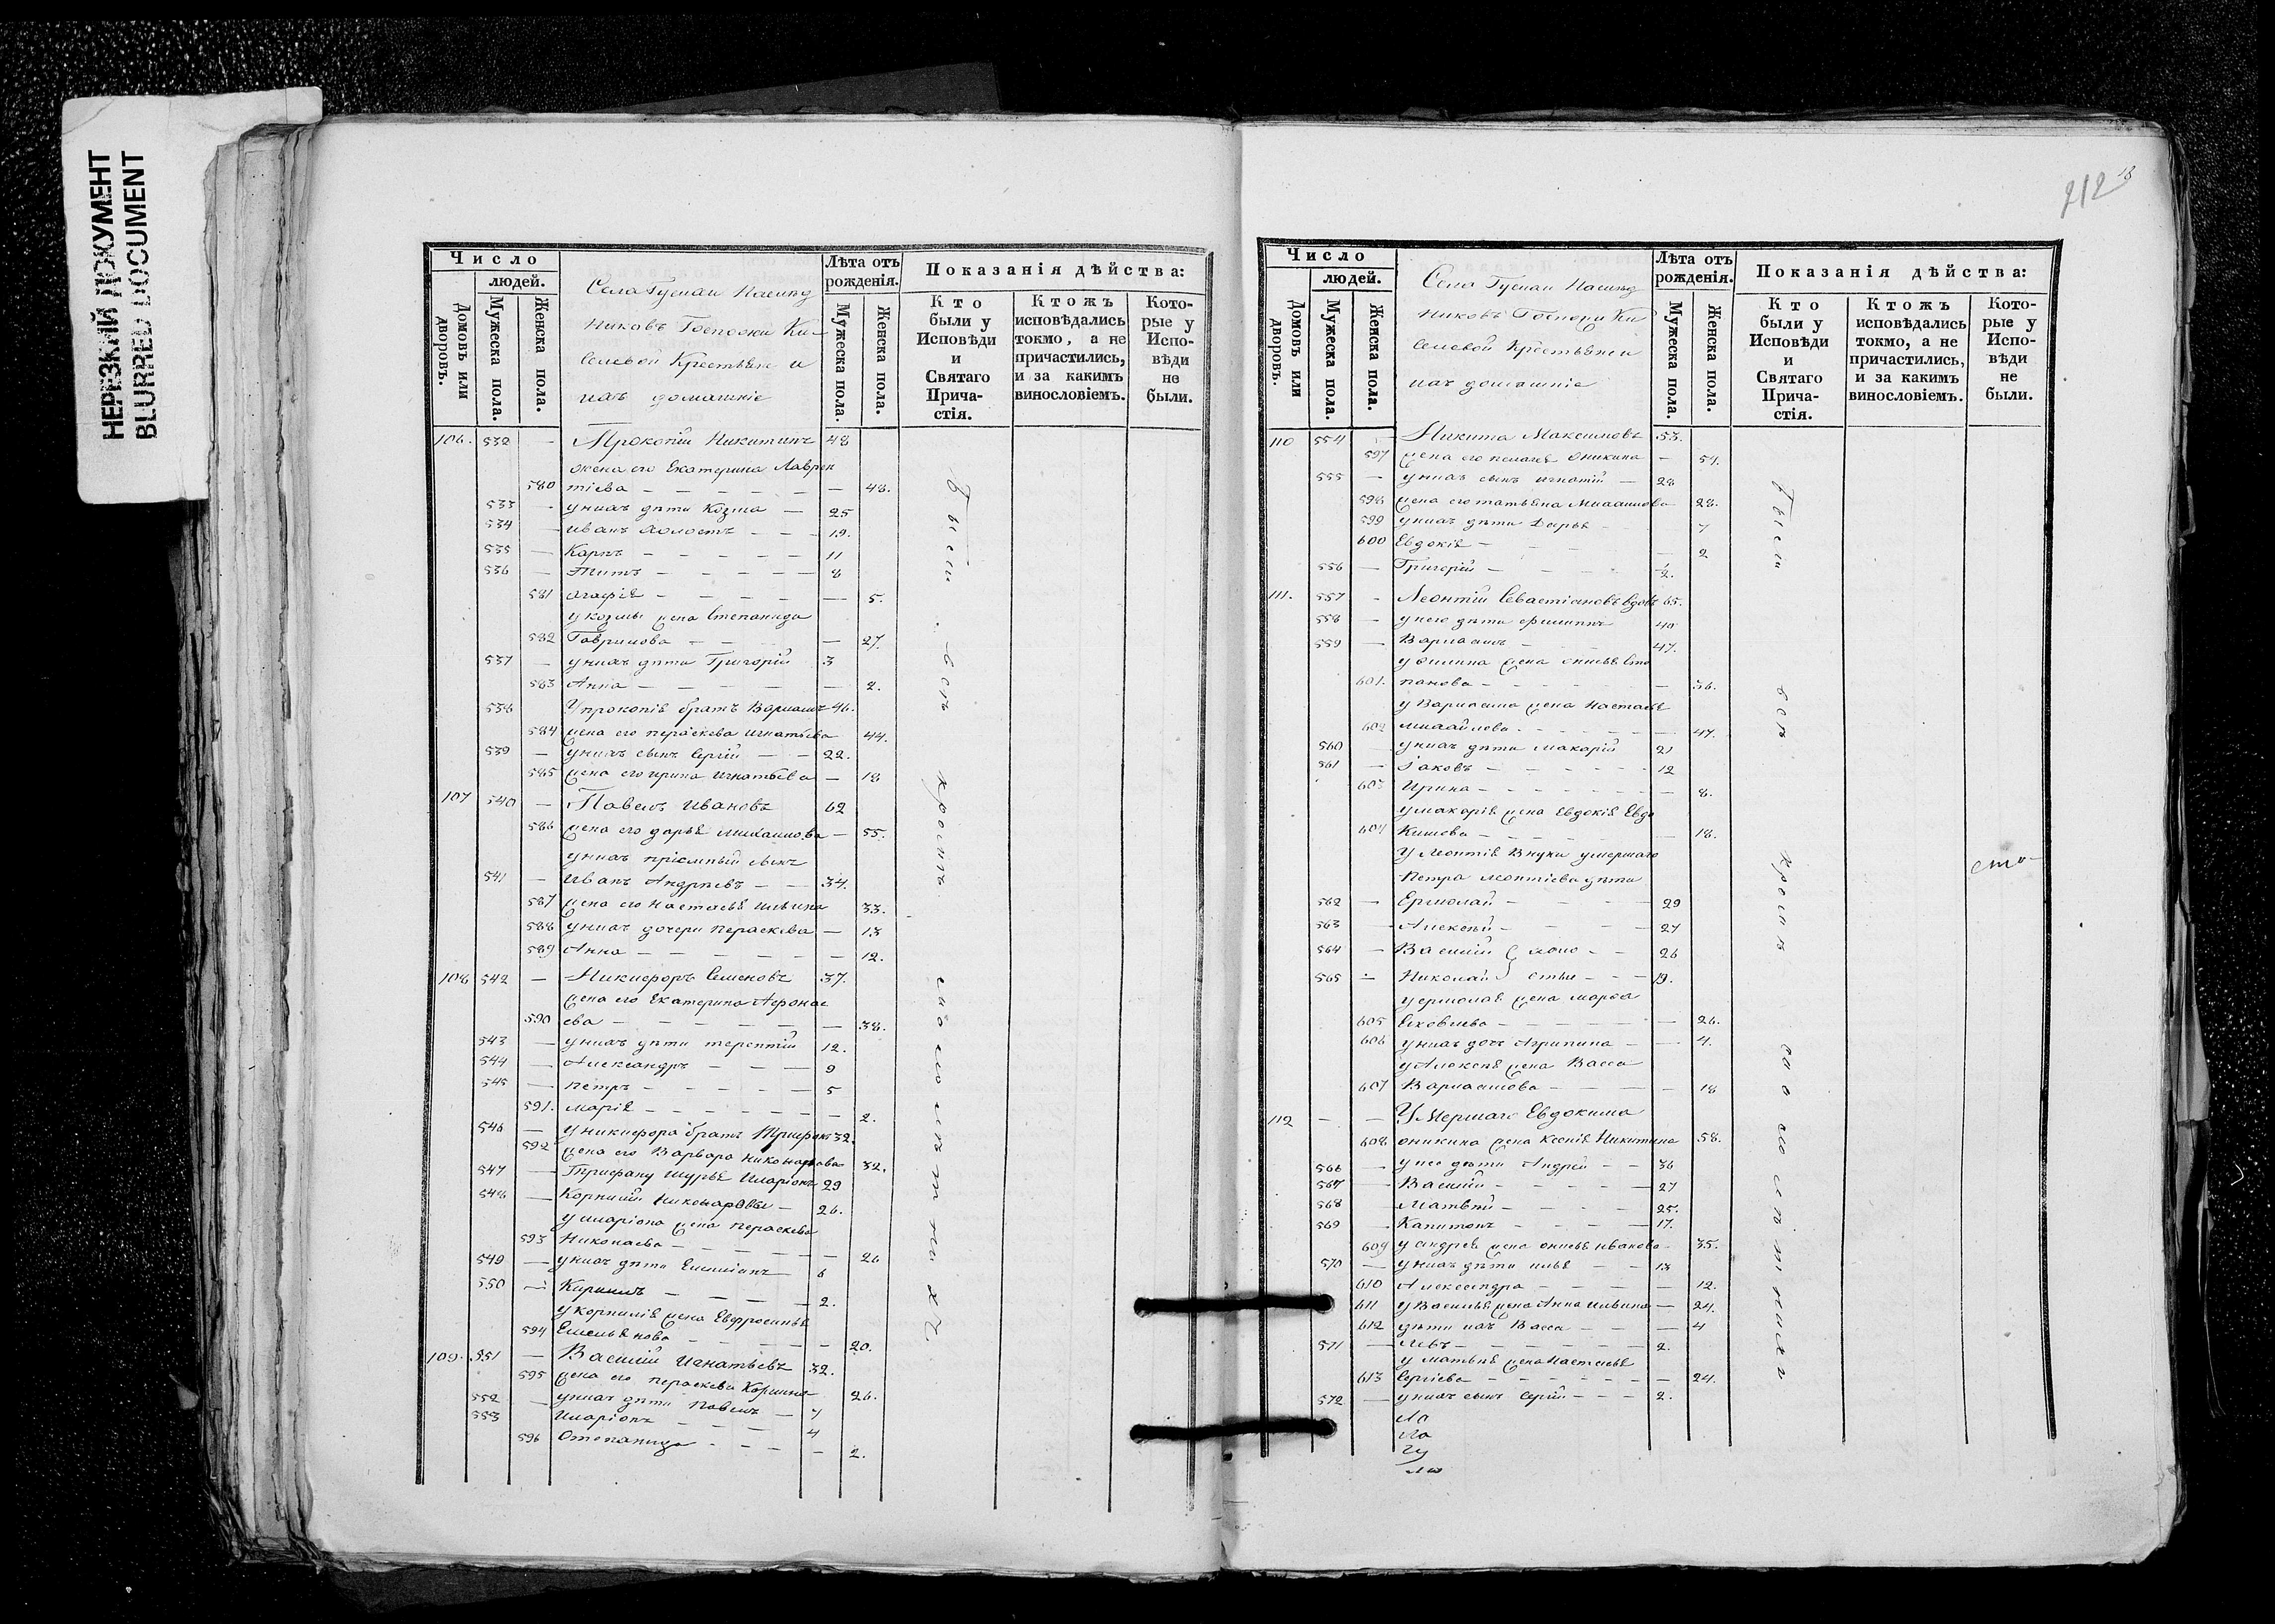 НЕРЕЗКИЙ ДОКУМЕНТ
BLURRED DOCUMENT
Число
людей.
Домовъ или дворовъ.
Мужеска пола.
Женска пола.
Села Гуспаи наслѣд
никовъ Госпожи Ки-
селевой Крестьяне и
ихъ домашніе
Лѣта отъ рожденія.
Мужеска пола.
Женска пола.
Показанія дѣйства:
Кто были у Исповѣди и Святаго Прича-стія.
Ктожъ исповѣдались токмо, а не причастились, и за какимъ винословіемъ.
Кото-рые у Испо-вѣди не были.
106. 532 — Прокопій Никитинъ 48
жена его Екатерина Лаврен
580 тіева — 48.
533 — у нихъ дѣти Козма — 25
534 — Иванъ холостъ — 19.
535 — Карпъ — 11
536 — Титъ — 8
581 Агафія — 5.
у козмы жена Степанида
582 Гаврилова — 27.
537 — у нихъ дѣти Григорій 3
583 Анна — 2.
538 У прокопія братъ Варлаамъ 46.
584 жена его пераскева игнатьева 44.
539 — у нихъ сынъ Сергій — 22.
585 жена его ирина игнатьева — 18
107 540 — Павелъ Ивановъ 62
586 жена его дарья михаилова — 55.
у нихъ пріемный сынъ
541 — Иванъ Андреевъ — 34.
587 жена его настасья ильина 33.
588 у нихъ дочери пераскева — 13
589 Анна — 12.
108 542 — Никифоръ Семеновъ 37.
жена его Екатерина Афонас
590 ева — 38.
543 — у нихъ дѣти терентій 12.
544 — Александръ — 9
545 — петръ — 5
591. марія — 2.
546 — у никифора братъ Трифонъ 32.
592 жена его Варвара никонорова 32.
547 — Трифону шурья Иларіонъ 29
548 — Корнилій никоноровы — 26.
у иларіона жена пераскева
593 Николаева — 26
549 — у нихъ дѣти Емиліанъ 6
550 — Кирилъ — 2.
у корнилія жена Евфросинья
594 Емельянова — 20.
109. 551 — Василій Игнатьевъ 32.
595 жена его пераскева Корнил— 26.
552 — у нихъ дѣти Павелъ — 7
553 Иларіонъ — 4
596 Степанида — 2.
Были всѣ кромѣ малолѣтныхъ.
212
Число
людей.
Домовъ или дворовъ.
Мужеска пола.
Женска пола.
Села Гуспаи наслѣд
никовъ Госпожи Ки
селевой Крестьяне и
ихъ домашніе
Лѣта отъ рожденія.
Мужеска пола.
Женска пола.
Показанія дѣйства:
Кто были у Исповѣди и Святаго Прича-стія.
Ктожъ исповѣдались токмо, а не причастились, и за какимъ винословіемъ.
Кото-рые у Испо-вѣди не были.
110 554 — Никита Максимовъ 53.
597 жена его пелагея Оникина — 54.
555 — у нихъ сынъ игнатій — 28
598 жена его татьяна Михаилова 28.
599 у нихъ дѣти Дарья — 7
600 Евдокія — 2
556 — Григорій — ½.
111. 557 — Леонтій Севастіановъ вдовъ 65.
558 — у него дѣти филиппъ 40
559 — Варлаамъ — 47.
у филипа жена анисья Сте
601. панова — 36.
у Варлаама жена настасья
602 михайлова — 47.
560 — у нихъ дѣти Макарій 21
561 — Іаковъ — 12
603 Ирина — 8.
у макарія жена Евдокія Евдо
604 кимова — 18.
У Леонтія внуки умершаго
петра леонтіева дѣти
562 — Ермолай — 29
563 — Алексѣй — 27
564 — Василій холо — 26
565 — Николай стыи — 19.
у ермолая жена марфа
605 Яковлева — 26.
606 у нихъ дочь Агрипина — 4.
у Алексѣя жена Васса
607 Варлаамова — 18
112 — — Умершаго Евдокима
608 оникина жена Ксенія Никитина 58.
566 — у нее дѣти Андрей — 36
567 — Василій — 27
568 — Матвѣй — 25.
569 — Капитонъ — 17.
609 у андрея жена анисья иванова 35.
570 — у нихъ дѣти илья — 13
610 Александра — 12.
611 у Василья жена Анна ильина — 24.
612 дѣти ихъ Васса — 4
571 — Левъ — 2.
у матвѣя жена настасья
613 Сергіева — 24.
572 — у нихъ сынъ Сергій — 2.
Были всѣ кромѣ малолѣтныхъ